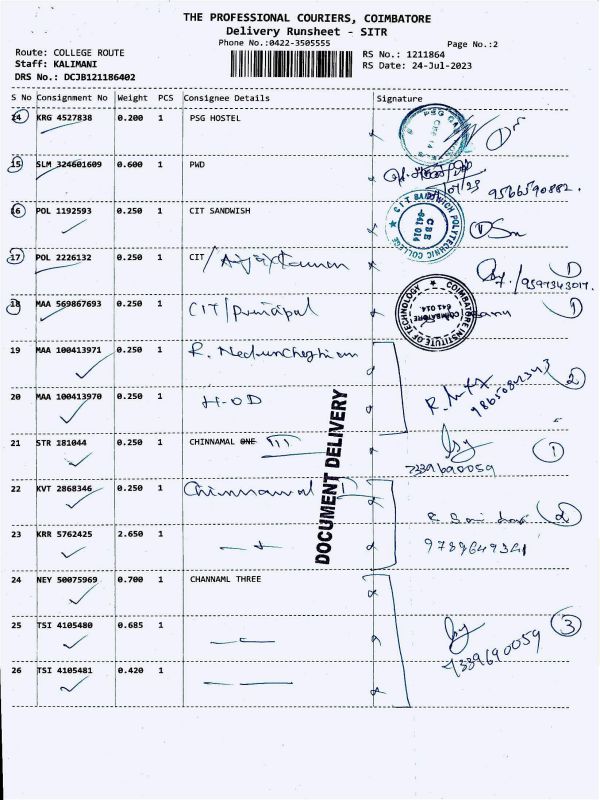 THE PROFESSIONAL COURIERS, COIMBATORE
Delivery Runsheet - SITR
Phone No.:0422-3505555
Page No.:2
Route: COLLEGE ROUTE
RS No.: 1211864
Staff: KALIMANI
RS Date: 24-Jul-2023
DRS No.: DCJB121186402
S No Consignment No Weight PCS Consignee Details Signature
14 KRG 4527838 0.200 1 PSG HOSTEL
15 SLM 324601609 0.600 1 PWD
9566590882.
16 POL 1192593 0.250 1 CIT SANDWISH
CIT SANDWICH POLYTECHNIC COLLEGE
CBE
641 014
17 POL 2226132 0.250 1 CIT/
18 MAA 569867693 0.250 1 CIT/Principal
COIMBATORE INSTITUTE OF TECHNOLOGY
COIMBATORE
641 014
19 MAA 100413971 0.250 1 R. Nedunchezhian
20 MAA 100413970 0.250 1 H-O D
2
21 STR 181044 0.250 1 CHINNAMAL ONE III
1
7339690059
22 KVT 2868346 0.250 1 Chinnamal I
2
23 KRR 5762425 2.650 1
9789649341
24 NEY 50075969 0.700 1 CHANNAML THREE
25 TSI 4105480 0.685 1
3
7339690059
26 TSI 4105481 0.420 1
DOCUMENT DELIVERY